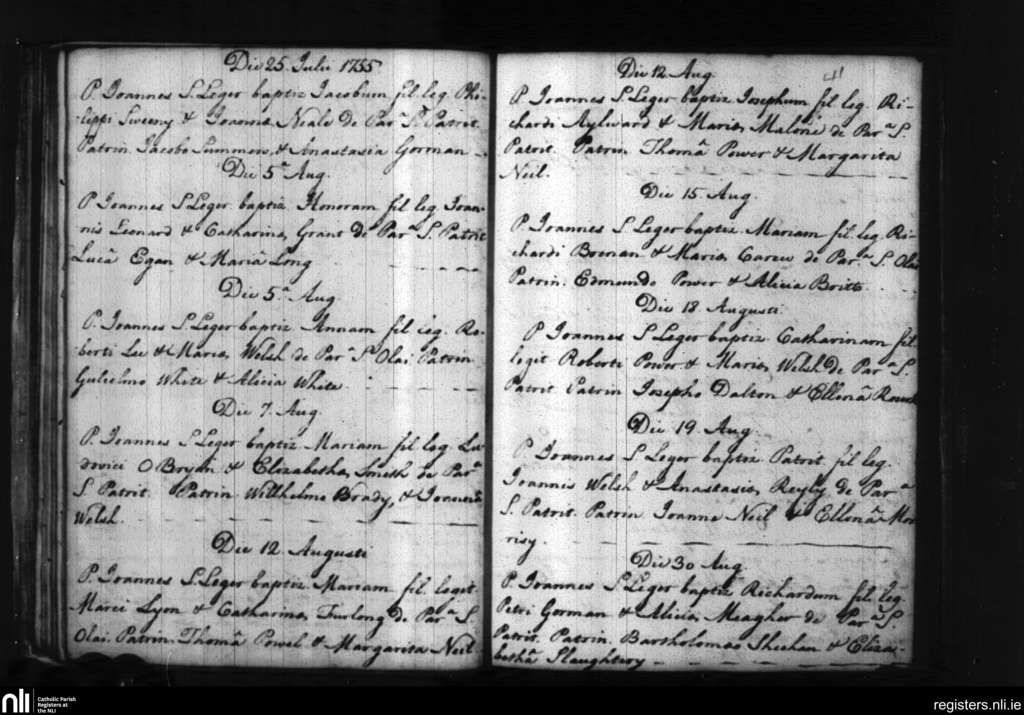 Die 25 Julii 1755
P. Joannes S. Leger baptiz Jacobum fil. leg. Phi-
lippi Sweeny & Joannæ Neale de Par.a S. Patrit.
Patrin. Jacobo Summers, & Anastasia Gorman
Die 5.a Aug.
P. Joannes S. Leger baptiz Honoram fil. leg. Joan-
nis Leonard & Catharinæ Grant de Par.a S. Patrit
Lucâ Egan & Mariâ Long
Die 5.a Aug
P. Joannes S. Leger baptiz Annam fil leg. Ro-
berti Lee & Mariæ Welsh de Par.a S. Olai Patrin
Gulielmo White & Alicia White
Die 7. Aug.
P. Joannes S. Leger baptiz Mariam fil leg. Lu
dovici O Bryan & Elizabethæ Smith de Par.a
S. Patrit. Patrin. Willhelmo Brady, & Joanna
Welsh.
Die 12. Augusti
P. Joannes S. Leger baptiz Mariam fil. legit.
Marci Lyon & Catharinæ Furlong de Par.a S.
Olai. Patrin. Thomâ Powel & Margarita Neil
41
Die 12 Aug.
P. Joannes S. Leger baptiz Josephum fil leg. Ri-
chardi Aylward & Mariæ Malone de Par.a S.
Patrit. Patrin Thomâ Power & Margarita
Neil.
Die 15. Aug.
P. Joannes S Leger baptiz Mariam fil. leg. Ri-
chardi Bornan & Mariæ Carew de Par.a S. Olai
Patrin. Edmundo Power & Alicia Britt
Die 18. Augusti.
P Joannes S Leger baptiz Catharinam fil
legit Roberti Power & Mariæ Welsh de Par.a S.
Patrit Patrin Josepho Dalton & Ellenâ
Die 19. Aug
P. Joannes S. Leger baptiz Patrit fil leg.
Joannis Welsh & Anastasiæ Reyly de Par.a
S. Patrit. Patrin Joanne Neil & Ellenâ Mor
risy.
Die 30 Aug
P. Joannes S. Leger baptiz Richardum fil. leg.
Petri Gorman & Aliciæ Meagher de Par.a S.
Patrit. Patrin. Bartholomæo Sheehan & Eliza-
bethâ Slaughtery
nli
Catholic Parish
Registers at
the NLI
registers.nli.ie